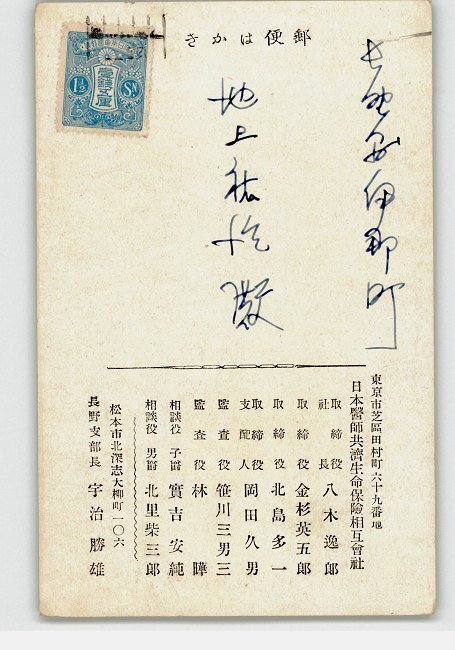 郵便はかき
1½ Sn
壹錢五厘
長野縣伊那町
池上
殿
東京市芝區田村町六十九番地
日本醫師共濟生命保險相互會社
取締役社長 八木逸郎
取締役 金杉英五郎
取締役 北島多一
取締役支配人 岡田久男
監査役 笹川三男三
監査役 林 暲
相談役 子爵 實吉安純
相談役 男爵 北里柴三郎
松本市北深志大柳町一〇六
長野支部長 宇治勝雄